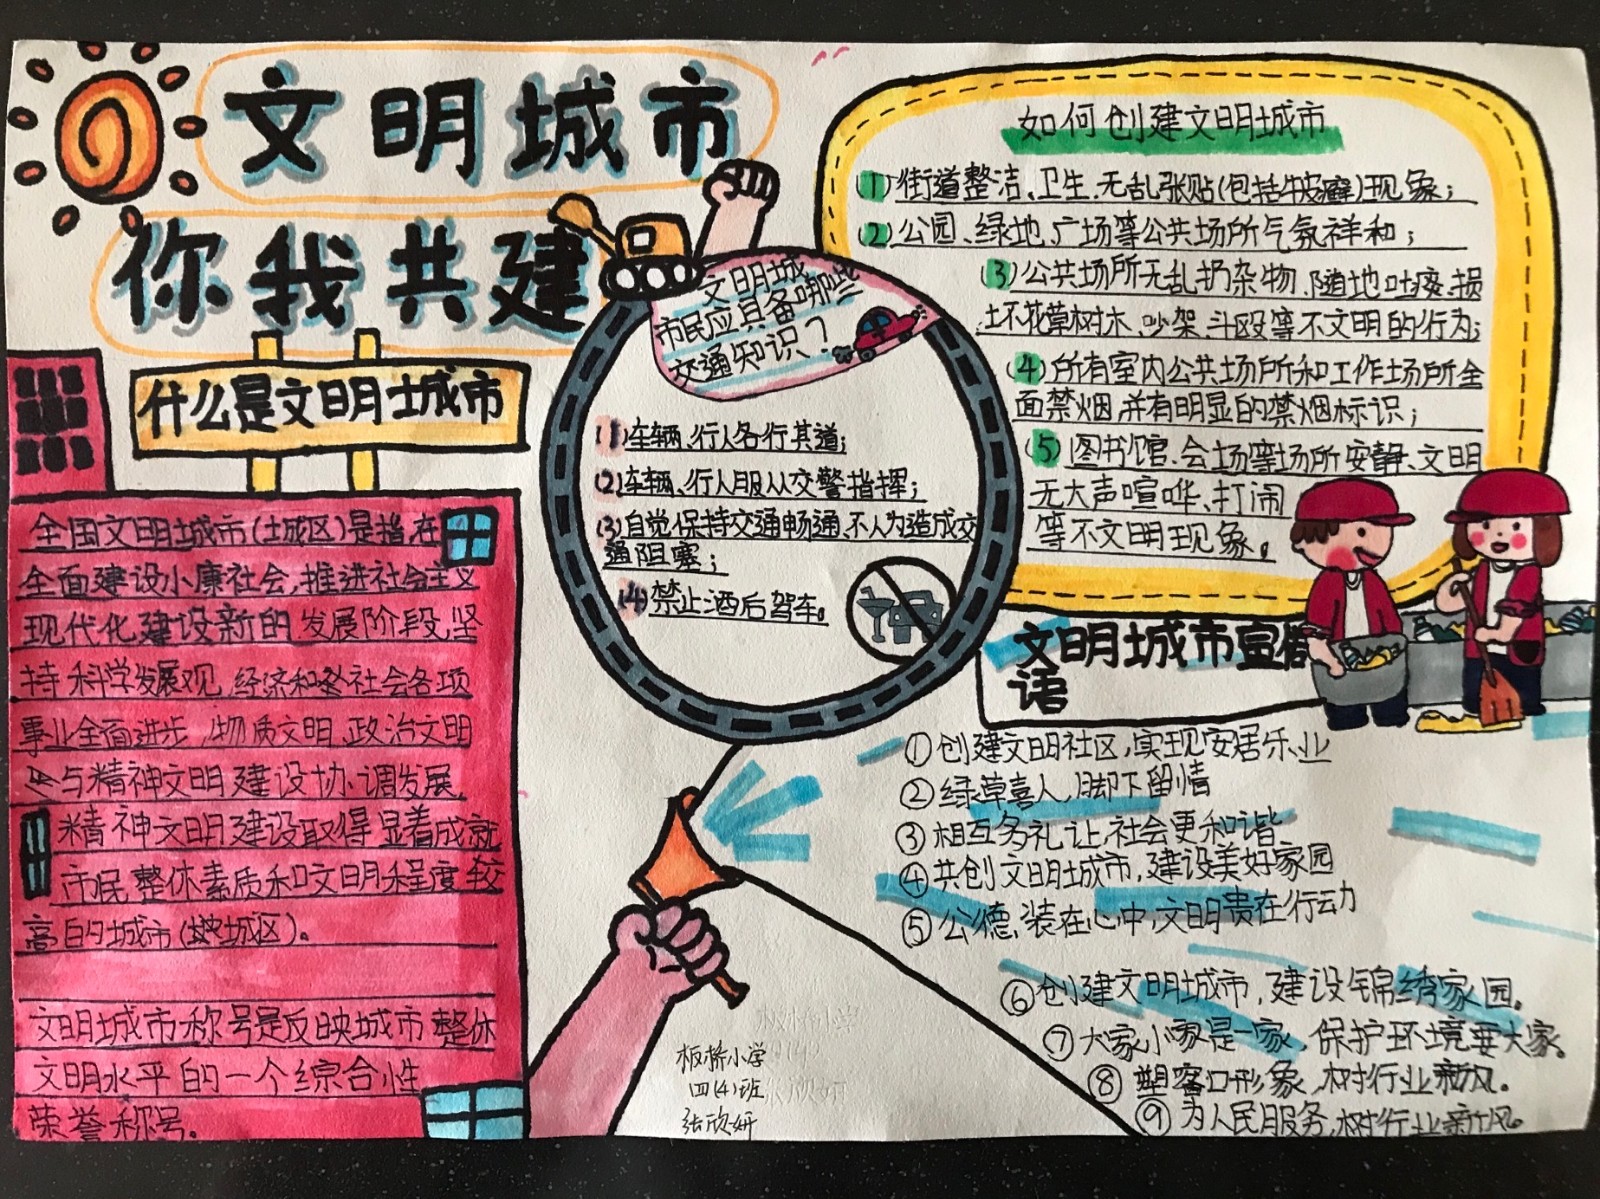 文明城市
你我共建
什么是文明城市
全国文明城市(城区)是指在
全面建设小康社会,推进社会主义
现代化建设新的发展阶段,坚
持科学发展观,经济和社会各项
事业全面进步,物质文明、政治文明
与精神文明建设协调发展,
精神文明建设取得显着成就
市民整体素质和文明程度较
高的城市(城区)。
文明城市称号是反映城市整体
文明水平的一个综合性
荣誉称号。
文明城
市民应具备哪些
交通知识?
(1)车辆、行人各行其道;
(2)车辆、行人服从交警指挥;
(3)自觉保持交通畅通,不人为造成交
通阻塞;
(4)禁止酒后驾车。
如何创建文明城市
(1)街道整洁、卫生、无乱张贴(包括牛皮癣)现象;
(2)公园、绿地、广场等公共场所气氛祥和;
(3)公共场所无乱扔杂物、随地吐痰、损
坏花草树木、吵架、斗殴等不文明的行为;
(4)所有室内公共场所和工作场所全
面禁烟,并有明显的禁烟标识;
(5)图书馆、会场等场所安静、文明
无大声喧哗、打闹
等不文明现象。
文明城市宣传
语
①创建文明社区,实现安居乐业
②绿草喜人,脚下留情
③相互多礼让,社会更和谐
④共创文明城市,建设美好家园
⑤公德装在心中,文明贵在行动
⑥创建文明城市,建设锦绣家园。
⑦大家小家是一家,保护环境要大家。
⑧塑窗口形象,树行业新风。
⑨为人民服务,树行业新风。
板桥小学
四(4)班
张欣妍